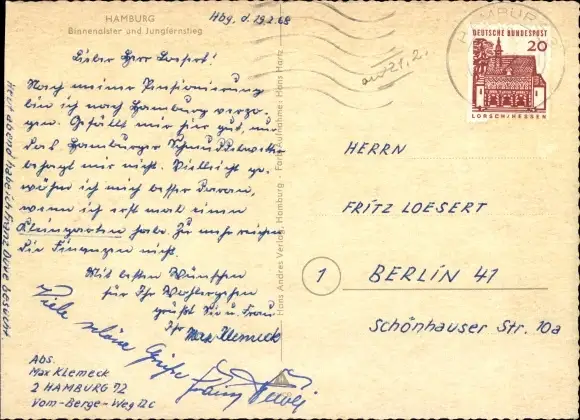 HAMBURG
Binnenalster und Jungfernstieg
Hbg, d. 19.2.68
Lieber Herr Loesert!
Nach meiner Pensionierung
bin ich nach Hamburg verzo-
gen. Gefällt mir hier gut, nur
das Hamburger Schmuddelwetter
behagt mir nicht. Vielleicht ge-
wöhne ich mich besser daran,
wenn ich erst mal einen
Kleingarten habe. Zu mehr reichen
die Finanzen nicht.
Mit besten Wünschen
für Ihr Wohlergehen
grüßt Sie u. Frau
Ihr Max Klemeck
Viele schöne Grüße
Franz
Heut abend habe ich Franz besucht
Abs.
Max Klemeck
2 HAMBURG 72
Vom-Berge-Weg 12c
Hans Andres Verlag, Hamburg - Farbaufnahme: Hans Hartz
21.2.
DEUTSCHE BUNDESPOST
20
LORSCH/HESSEN
HAMBURG
HERRN
FRITZ LOESERT
1 BERLIN 41
Schönhauser Str. 10a